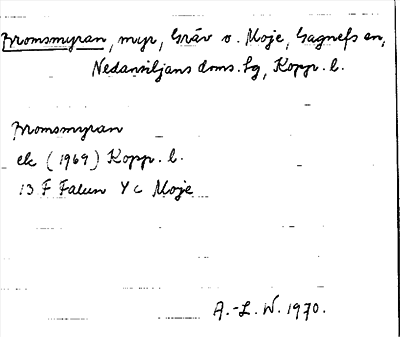 Bromsmyran, myr, Gräv o. Moje, Gagnefs sn,
Nedansiljans doms. lg, Kopp. l.
Bromsmyran
ek (1969) Kopp. l.
13 F Falun Y c Moje
A.-L. W. 1970.